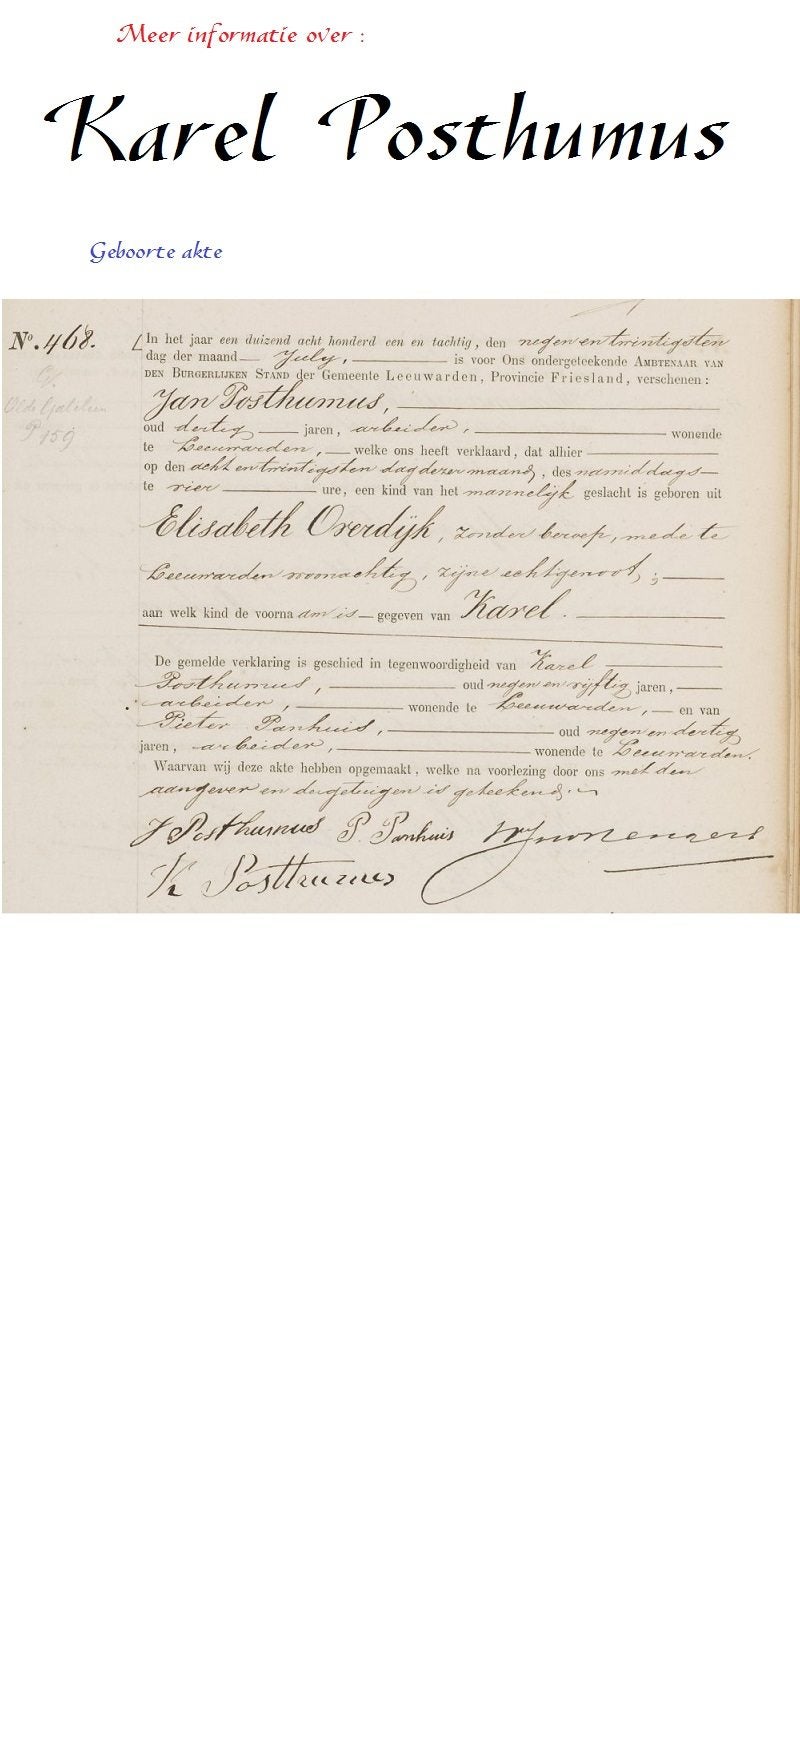 Meer informatie over :
Karel Posthumus
Geboorte akte
No. 468.
P 159
In het jaar een duizend acht honderd een en tachtig, den negen en twintigsten
dag der maand July, is voor Ons ondergeteekende AMBTENAAR VAN
DEN BURGERLIJKEN STAND der Gemeente Leeuwarden, Provincie Friesland, verschenen:
Jan Posthumus,
oud dertig jaren, arbeider, wonende
te Leeuwarden, welke ons heeft verklaard, dat alhier
op den acht en twintigsten dag dezer maand, des namiddags
te vier ure, een kind van het mannelijk geslacht is geboren uit
Elisabeth Overdijk, zonder beroep, mede te
Leeuwarden woonachtig, zijne echtgenoot;
aan welk kind de voornaam is gegeven van Karel.
De gemelde verklaring is geschied in tegenwoordigheid van Karel
Posthumus, oud negen en vijftig jaren,
arbeider, wonende te Leeuwarden, en van
Pieter Panhuis, oud negen en dertig
jaren, arbeider, wonende te Leeuwarden.
Waarvan wij deze akte hebben opgemaakt, welke na voorlezing door ons met den
aangever en de getuigen is geteekend.
J Posthumus P. Panhuis
K Posthumus